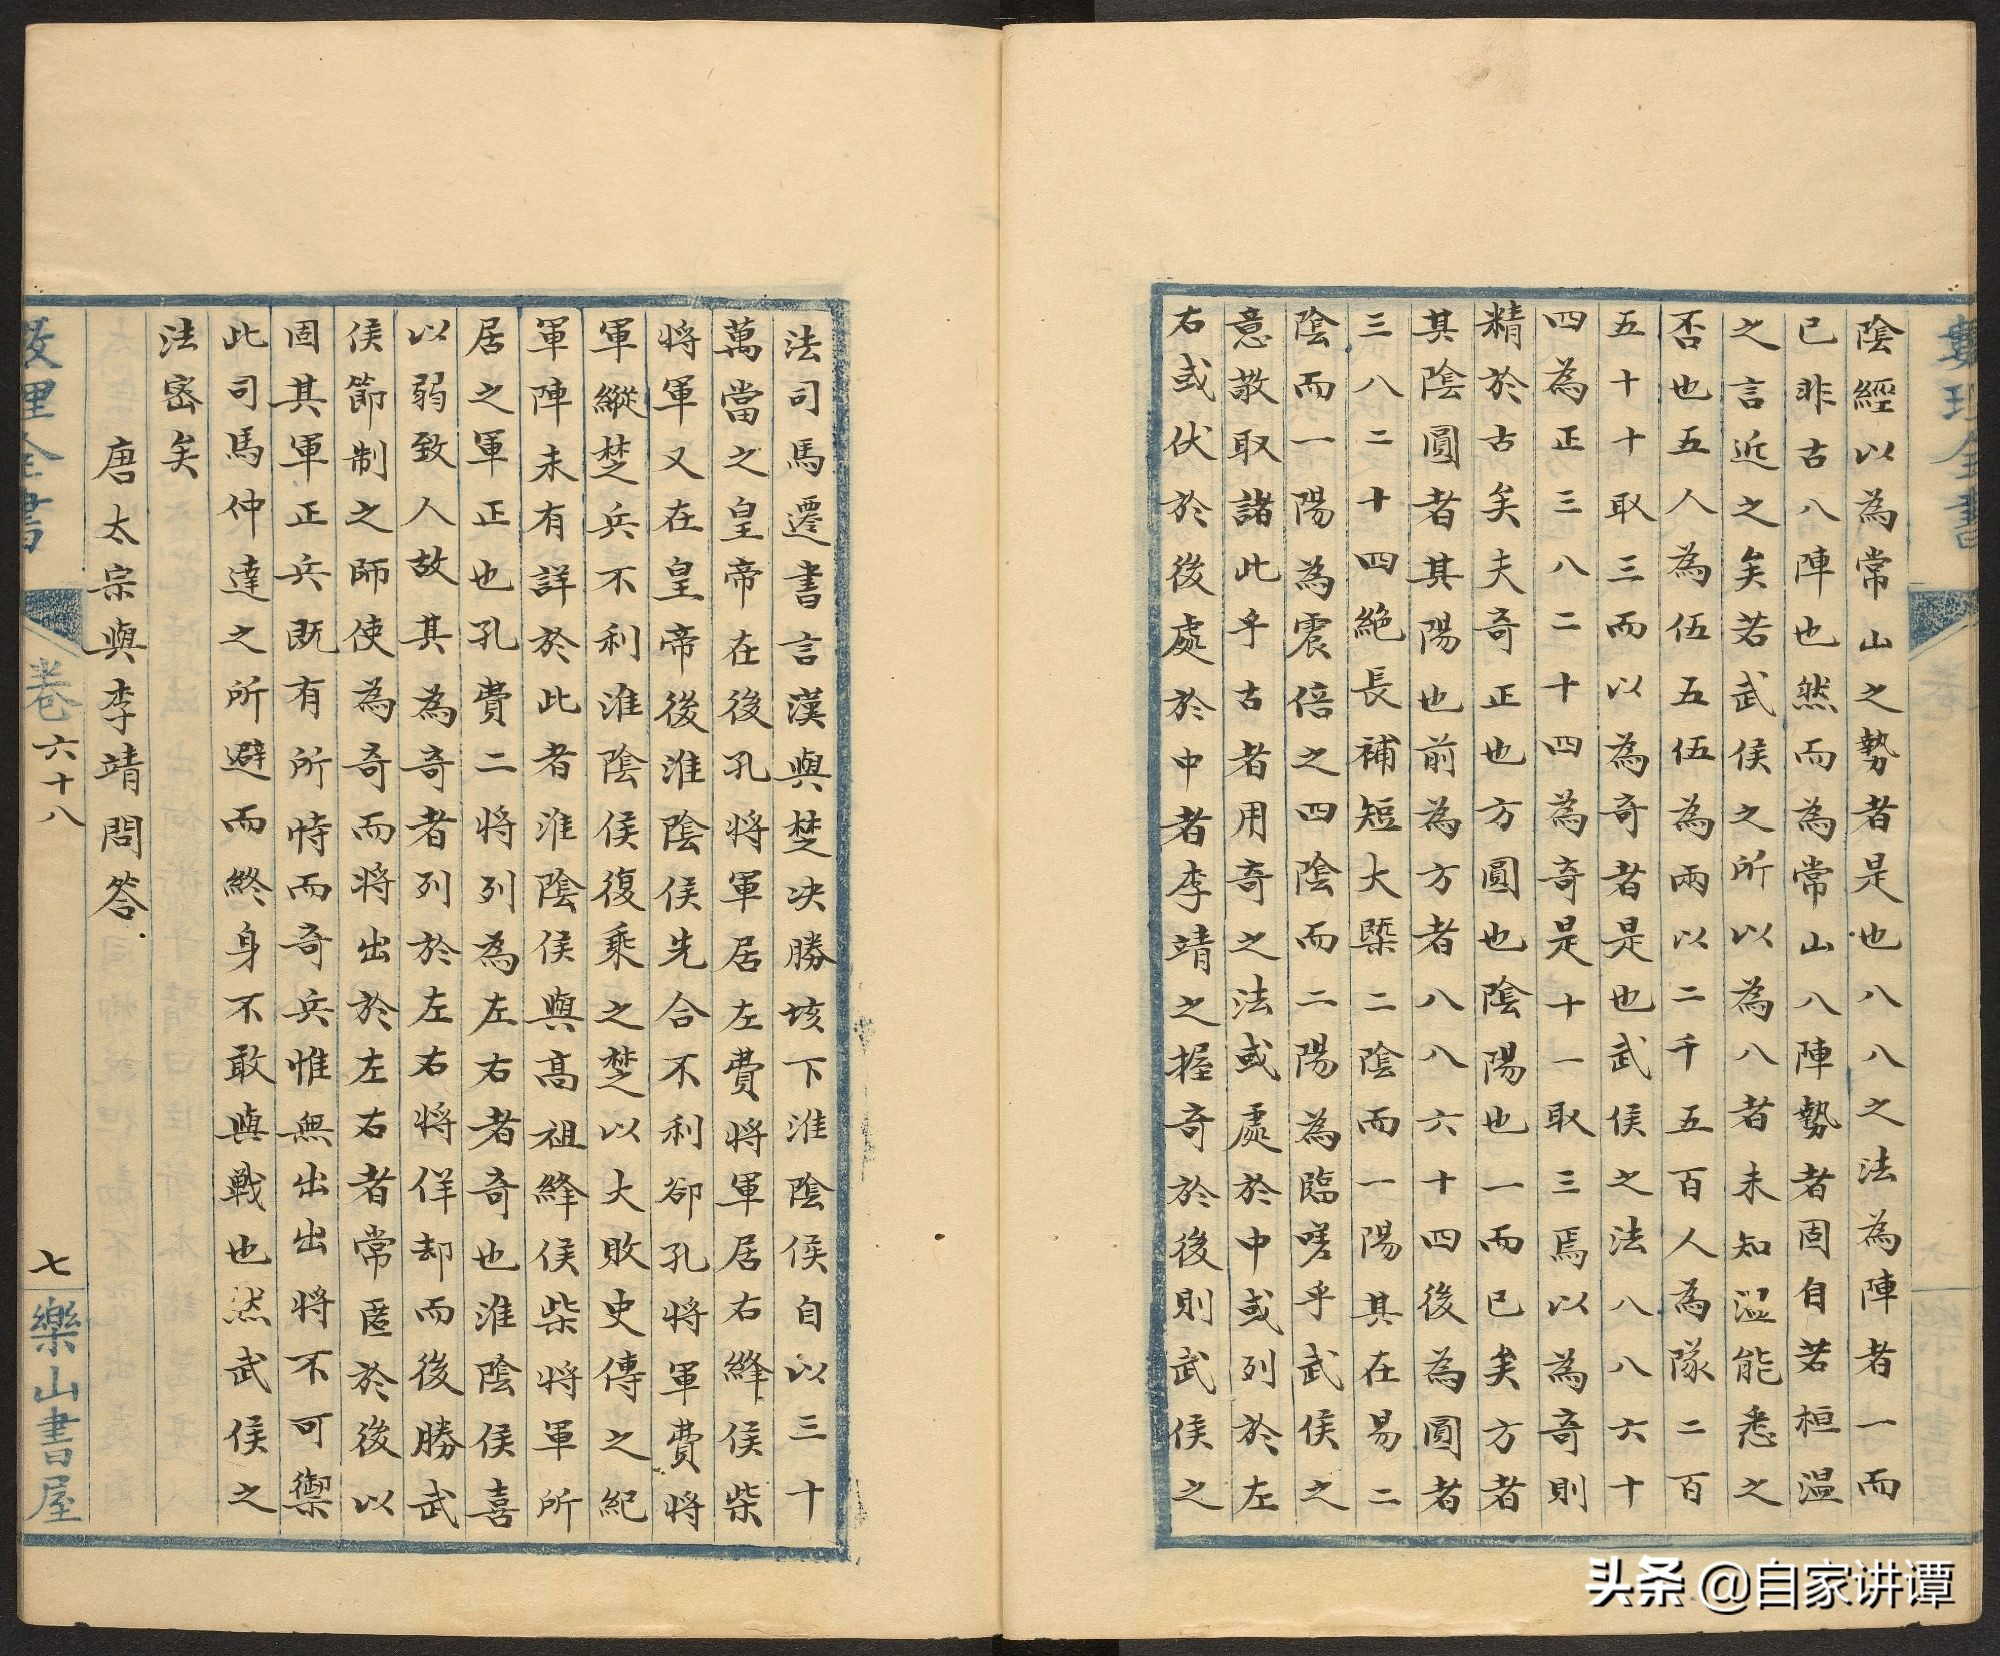 陰經以為常山之勢者是也八八之法為陣者一而
已非古八陣也然而為常山八陣勢者固自若桓溫
之言近之矣若武侯之所以為八者未知溫能悉之
否也五人為伍五伍為兩以二千五百人為隊二百
五十十取三而以為奇者是也武侯之法八八六十
四為正三八二十四為奇是十一取三焉以為奇則
精於古矣夫奇正也方圓也陰陽也一而已矣方者
其陰圓者其陽也前為方者八八六十四後為圓者
三八二十四絕長補短大槩二陰而一陽其在易二
陰而一陽為震倍之四陰而二陽為臨嗟乎武侯之
意敢取諸此乎古者用奇之法或處於中或列於左
右或伏於後處於中者李靖之握奇於後則武侯之
法司馬遷書言漢與楚决勝垓下淮陰侯自以三十
萬當之皇帝在後孔將軍居左費將軍居右絳侯柴
將軍又在皇帝後淮陰侯先合不利卻孔將軍費將
軍縱楚兵不利淮陰侯復乘之楚以大敗史傳之紀
軍陣未有詳於此者淮陰侯與高祖絳侯柴將軍所
居之軍正也孔費二將列為左右者奇也淮陰侯喜
以弱致人故其為奇者列於左右將佯却而後勝武
侯節制之師使為奇而將出於左右者常匿於後以
固其軍正兵既有所恃而奇兵惟無出出將不可禦
此司馬仲達之所避而終身不敢與戰也然武侯之
法密矣
唐太宗與李靖問答
卷六十八
七
樂山書屋
头条 @自家讲谭